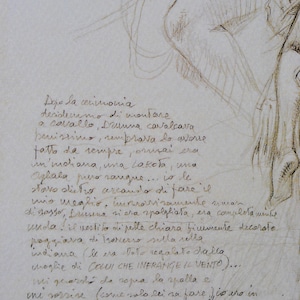 Dopo la cerimonia
decidemmo di montare
a cavallo. Emma cavalcava
benissimo, sembrava lo avesse
fatto da sempre, ormai era
un'indiana, una Lakota, una
Oglala puro sangue... io le
stavo dietro cercando di fare il
mio meglio. Improvvisamente
di sasso, Emma si era spogliata, era completamente
nuda. Il vestito di pelle chiara finemente decorato
poggiava di traverso sulla sella
indiana (le era stato regalato dalla
moglie di COLUI CHE INFRANGE IL VENTO)...
mi guardò da sopra la spalla e
mi sorrise (come solo lei sa fare) io ero in